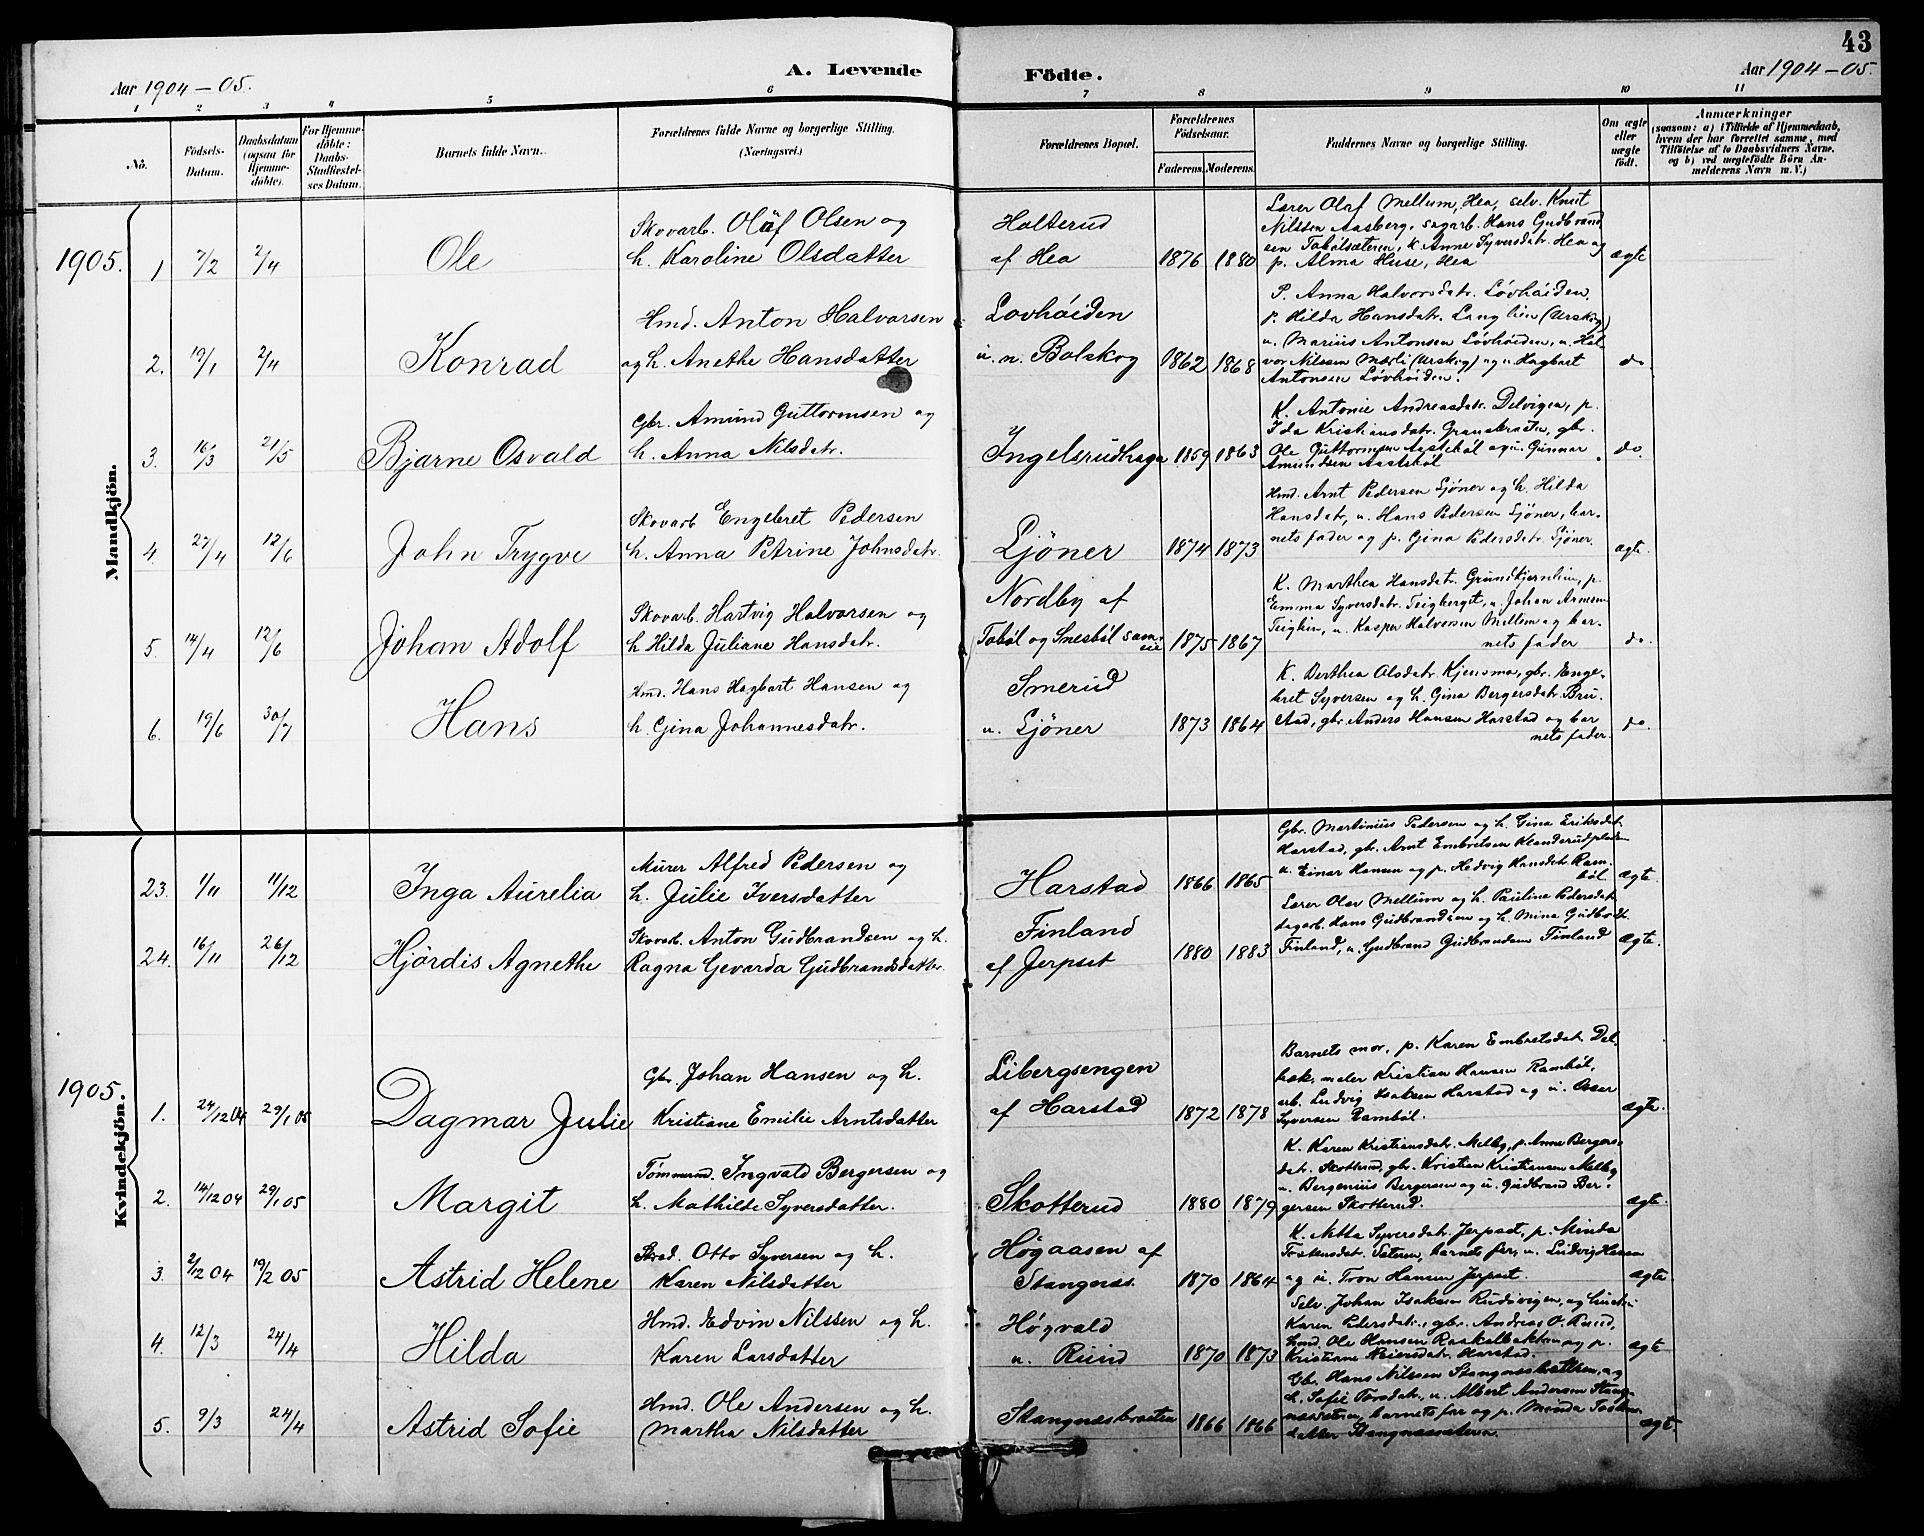 43
Aar 1904-05.
A. Levende Födte.
Aar 1904-05.
1 2 3 4 5 6 7 8 9 10 11
No.
Födsels-Datum.
Daabsdatum (ogsaa for Hjemme-döbte).
For Hjemme-döbte: Daabs-Stadfæstel-ses Datum.
Barnets fulde Navn.
Forældrenes fulde Navne og borgerlige Stilling. (Næringsvei.)
Forældrenes Bopæl.
Forældrenes Födselsaar.
Faderens. Moderens.
Faddernes Navne og borgerlige Stilling.
Om ægte eller uægte födt.
Anmærkninger
(saasom: a) i Tilfælde af Hjemmedaab, hvem der har forrettet samme, med Tilföielse af to Daabsvidners Navne, og b) ved uægtefödte Börn Anmelderens Navn m. V.)
Mandkjön.
1905.
1 7/2 2/4 Ole
Skovarb. Olaf Olsen og
h. Karoline Olsdatter
Holterud
af Hea
1876 1880
Lærer Olaf Mellum, Hea, selv. Knut
Nilssen Aasberg, sagarb. Hans Gudbrand
sen Tobölsæteren, k. Anne Syversdatr. Hea og
p. Alma Huse, Hea
ægte
2. 19/1 2/4 Konrad
Hmd. Anton Halvorsen
og h. Anethe Hansdatter
Lovhöiden
u. n. Bolskog
1862 1868
P. Anna Halvorsdatr. Lövhöiden,
p. Hilda Hansdatr. Langlien (Urskog)
u. Marius Antonsen Lövhöiden, u. Hal
vor Nilssen Mærli (Urskog) og u. Hagbart
Antonsen Lövhöiden.
do.
3. 16/3 21/5 Bjarne Osvald
Gbr. Amund Guttormsen og
h. Anna Nilsdatr.
Ingelsrudhaga
1859 1863
K. Antonie Andreasdatr. Delvigen, p.
Ida Kristiansdatr. Granebraaten, gbr.
Ole Guttormsen og u. Gunnar
Amundsen
do.
4. 27/4 12/6 John Trygve
Skovarb Engebret Pedersen
h. Anna Petrine Johnsdatr.
Ljöner
1874 1873
Hmd. Arnt Pedersen Ljöner og h. Hilda
Hansdatr, u. Hans Pedersen Ljöner, bar-
nets fader og p. Gina Pedersdatr. Ljöner.
ægte.
5. 14/4 12/6 Johan Adolf
Skovarb. Hartvig Halvorsen og
h Hilda Juliane Hansdatr.
Nordby af
Toböl og Snesböl sam-
eie
1875 1867
K. Marthea Hansdatr. Grundkjernlien, p.
Emma Syversdatr. Teigberget, u. Johan Arnesen
Teiglien, u. Kasper Halvorsen Mellem og bar-
nets fader
do.
6. 19/6 30/7 Hans
Hmd. Hans Hagbart Hansen og
h Gina Johannesdatr.
Smerud
u. Ljöner
1873 1864
K. Berthea Olsdatr Kjensmo, gbr. Enge-
bret Syversen og h. Gina Bergersdatr. Bru-
stad, gbr. Anders Hansen Harstad og bar
nets fader.
do.
Kvindekjön.
23. 1/11 11/12 Inga Aurelia
Murer Alfred Pedersen og
h. Julie Iversdatter
Harstad
1866 1865
Gbr. Martinius Pedersen og h. Gina Eriksdat.
Harstad, gbr. Arnt Embretsen Klanderudpladsen
u. Einar Hansen og p. Hedvig Hansdatr. Ram-
böl.
ægte.
24. 16/11 26/12 Hjördis Agnethe
Skovarb. Anton Gudbrandsen og h.
Ragna Gevarda Gudbrandsdatter
Finland
af Jerpset
1880 1883
Lærer Olav Mellum og h. Pauline Pedersdatr.
dagarb. Hans Gudbrandsen og h. Mina Gudbrdtr.
Finland, u. Gudbrand Gudbrandsen Finland
ægte.
1905.
1. 24/12 04 29/1 05 Dagmar Julie
Gbr. Johan Hansen og h.
Kristiane Emilie Arntsdatter
Libergsengen
af Harstad
1872 1878
Barnets mor, p. Karen Embretsdatr. Del-
bæk, maler Kristian Hansen Ramböl,
arb. Ludvig Isaksen Harstad og u. Oscar
Syversen Ramböl.
ægte.
2. 14/12 04 29/1 05 Margit
Tömmermd. Ingvald Bergersen og
h. Mathilde Syversdatter.
Skotterud
1880 1879
K. Karen Kristiansdatr. Melby, p. Anne Bergers-
datr. Skotterud, gbr. Kristian Kristiansen Melby
u. Bergenius Bergersen og u. Gudbrand Ber-
gersen Skotterud.
ægte.
3. 2/12 04 19/2 05 Astrid Helene
Otto Syversen og h.
Karen Nilsdatter
Högaasen af
Stangnæs.
1870 1864
K. Netta Syversdatr. Jerpset, p. Minda
Torstensdatr. Sætren, barnets far, u. Ludvig Hansen
og u. Tron Hansen Jerpset.
ægte
4. 12/3 24/4 Hilda
Hmd. Edvin Nilssen og h.
Karen Larsdatter
Högvald
u. Ruud
1870 1873
Selv. Johan Isaksen Rudsvigen, og hustru
Karen Pedersdatr., gbr. Andreas O. Ruud,
Hmd. Ole Hansen og p.
Kristiane Harstad.
ægte
5. 9/3 24/4 Astrid Sofie
Hmd. Ole Andersen og h.
Martha Nilsdatter
Stangnæsbraaten
1866 1866
Gbr. Hans Nilssen Stangnæsbakken, og
h. Sofie Torsdatr., u. Albert Andersen Stang-
næssætren, barnets far og p. Minda Torstens-
datter Stangnæssæteren.
ægte.